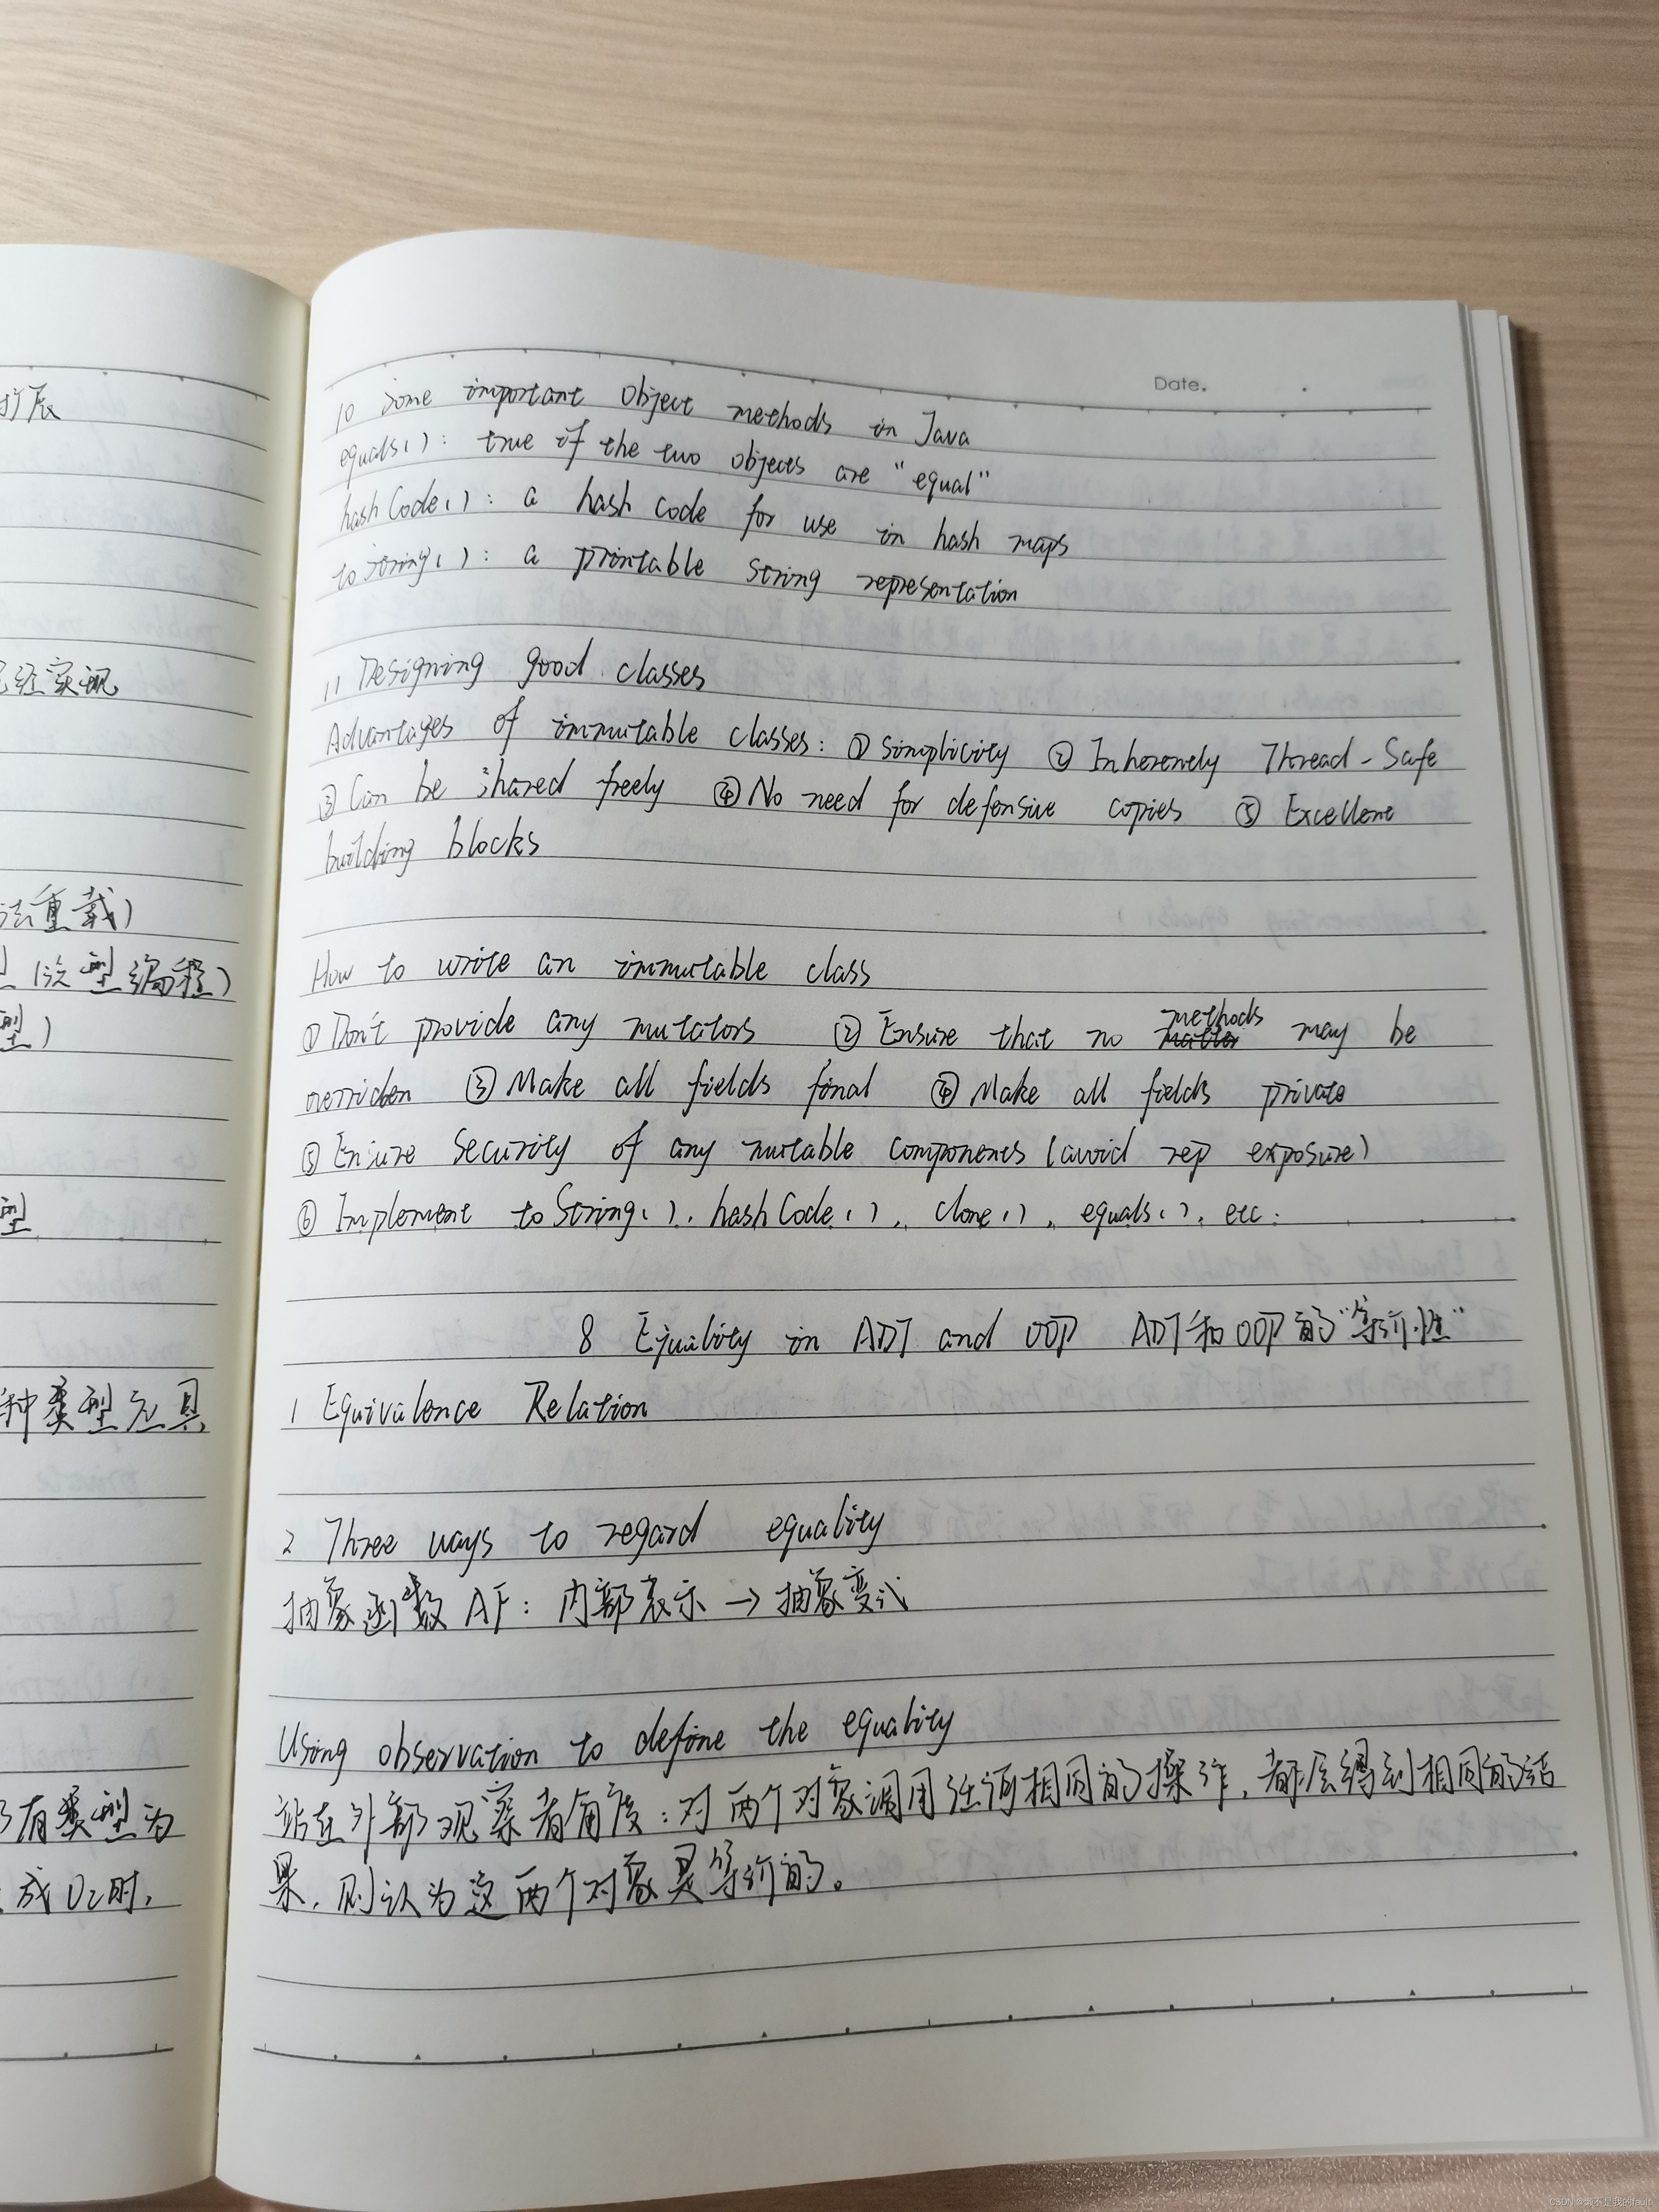 扩展
已经实现
法重载)
型 (泛型编程)
型)
型
种类型应具
有类型为
成O2时,
Date.
10 Some important Object methods in Java
equals(): true if the two objects are "equal"
hashCode(): a hash code for use in hash maps
toString(): a printable string representation
11 Designing good classes
Advantages of immutable classes: ① Simplicity ② Inherenely Thread-Safe
③ Can be shared freely ④ No need for defensive copies ⑤ Excellent
building blocks
How to write an immutable class
① Don't provide any mutators ② Ensure that no methods may be
overriden ③ Make all fields final ④ Make all fields private
⑤ Ensure security of any mutable components (avoid rep exposure)
⑥ Implement toString(), hashCode(), clone(), equals(), etc.
8 Equality in ADT and OOP ADT和OOP的"等价性"
1 Equivalence Relation
2 Three ways to regard equality
抽象函数AF: 内部表示→抽象变式
Using observation to define the equality
站在外部观察者角度:对两个对象调用任何相同的操作,都会得到相同的结
果,则认为这两个对象是等价的。
CSDN @懒不是我的fault